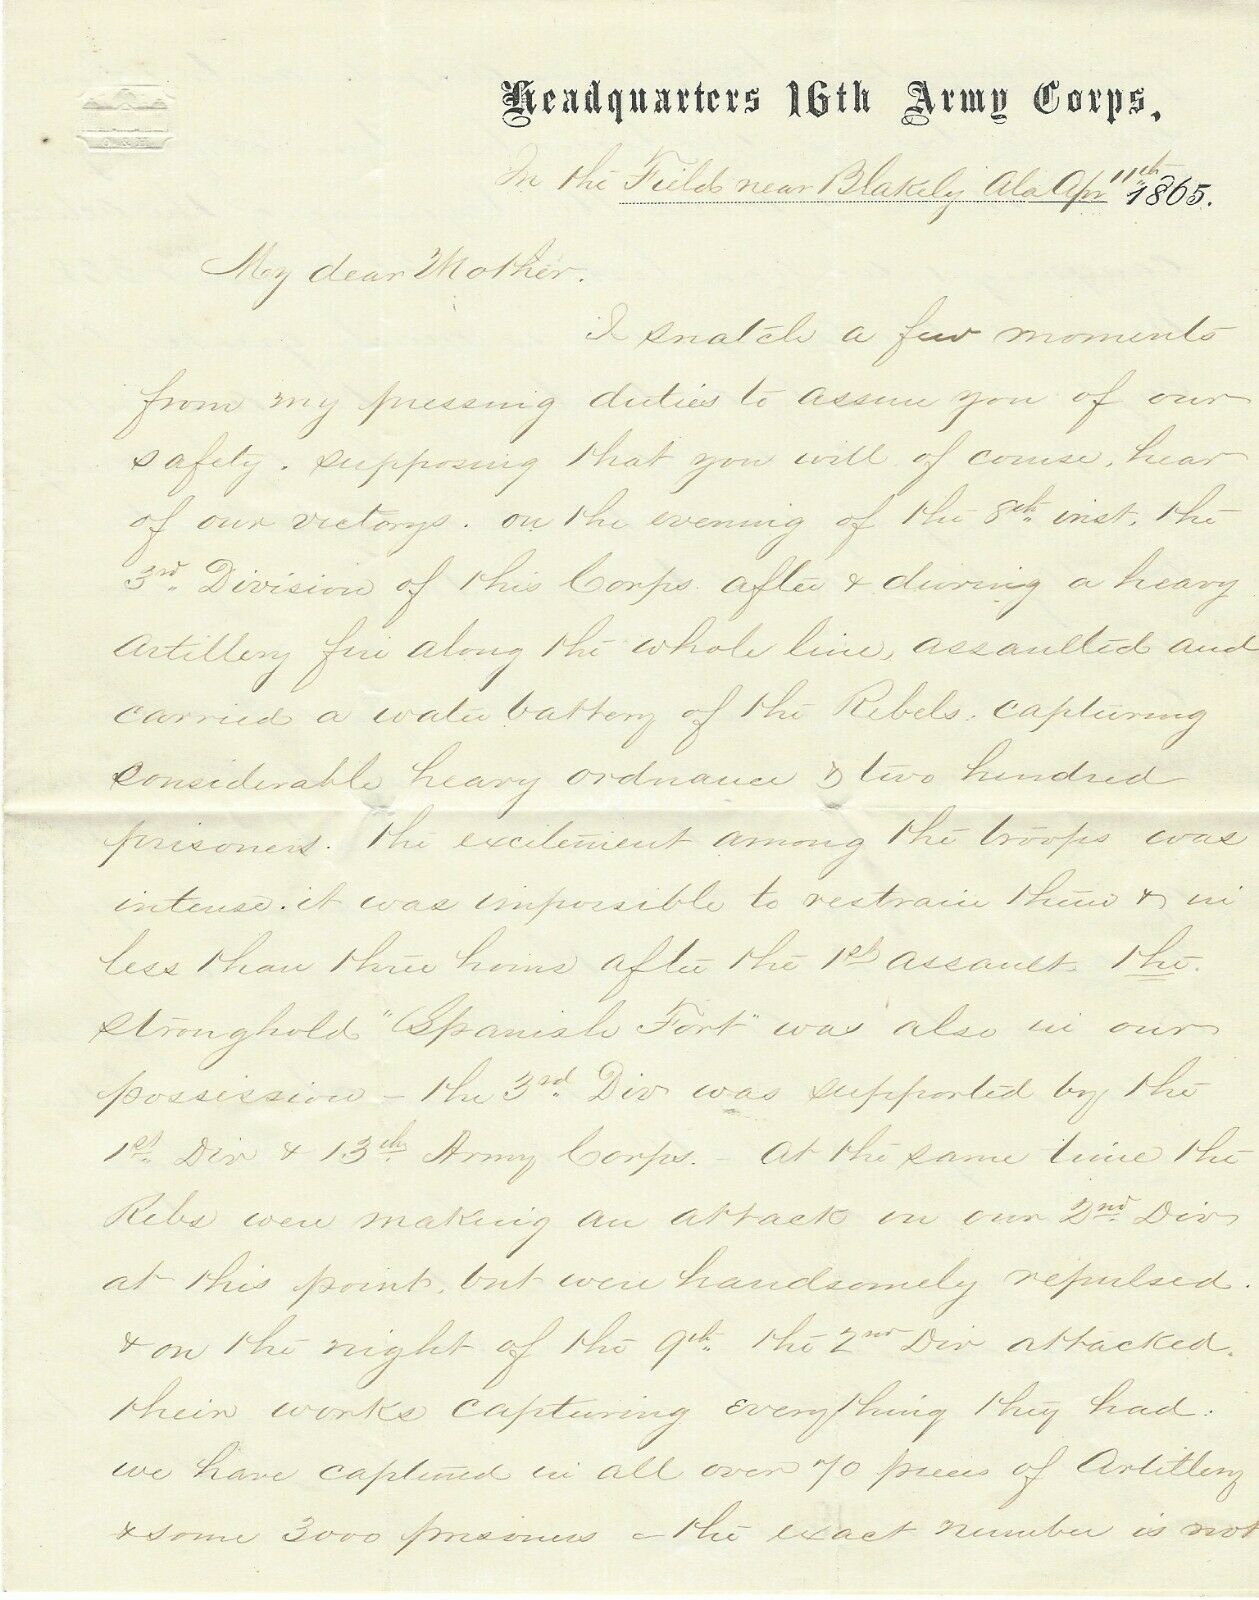 Headquarters 16th Army Corps,
In the Field near Blakely Ala Apr 11th 1865.
My dear Mother.
I snatch a few moments
from my pressing duties to assure you of our
safety. supposing that you will of course, hear
of our victorys. on the evening of the 8th inst. the
3rd Division of this Corps after & during a heavy
Artillery fire along the whole line, assaulted and
carried a water battery of the Rebels. capturing
considerable heavy ordnance & two hundred
prisoners. the excitement among the troops was
intense. it was impossible to restrain them & in
less than three hours after the 1st assault the
stronghold "Spanish Fort" was also in our
possession - the 3rd Div was supported by the
1st Div & 13th Army Corps. - at the same time the
Rebs were making an attack on our 2nd Div
at this point, but were handsomely repulsed.
& on the night of the 9th the 2nd Div attacked
their works capturing everything they had.
we have captured in all over 70 pieces of Artillery
& some 3000 prisoners - the exact number is not